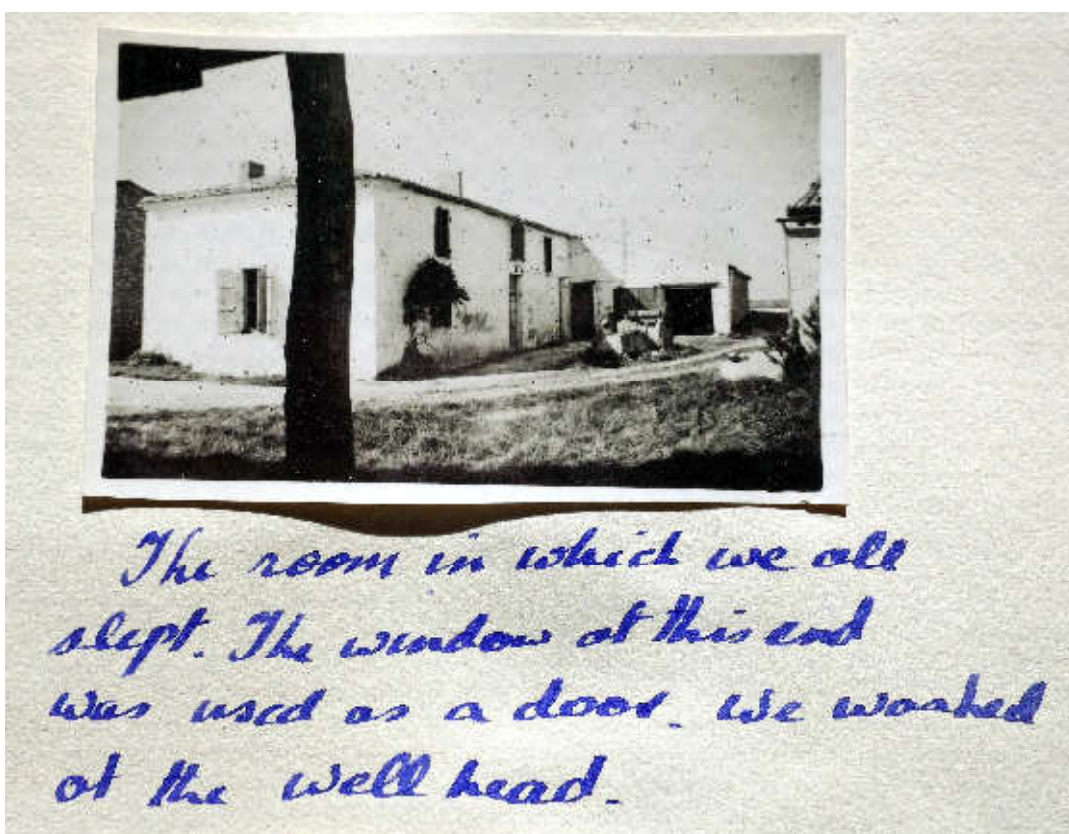 The room in which we all
slept. The window at this end
was used as a door. We washed
at the well head.